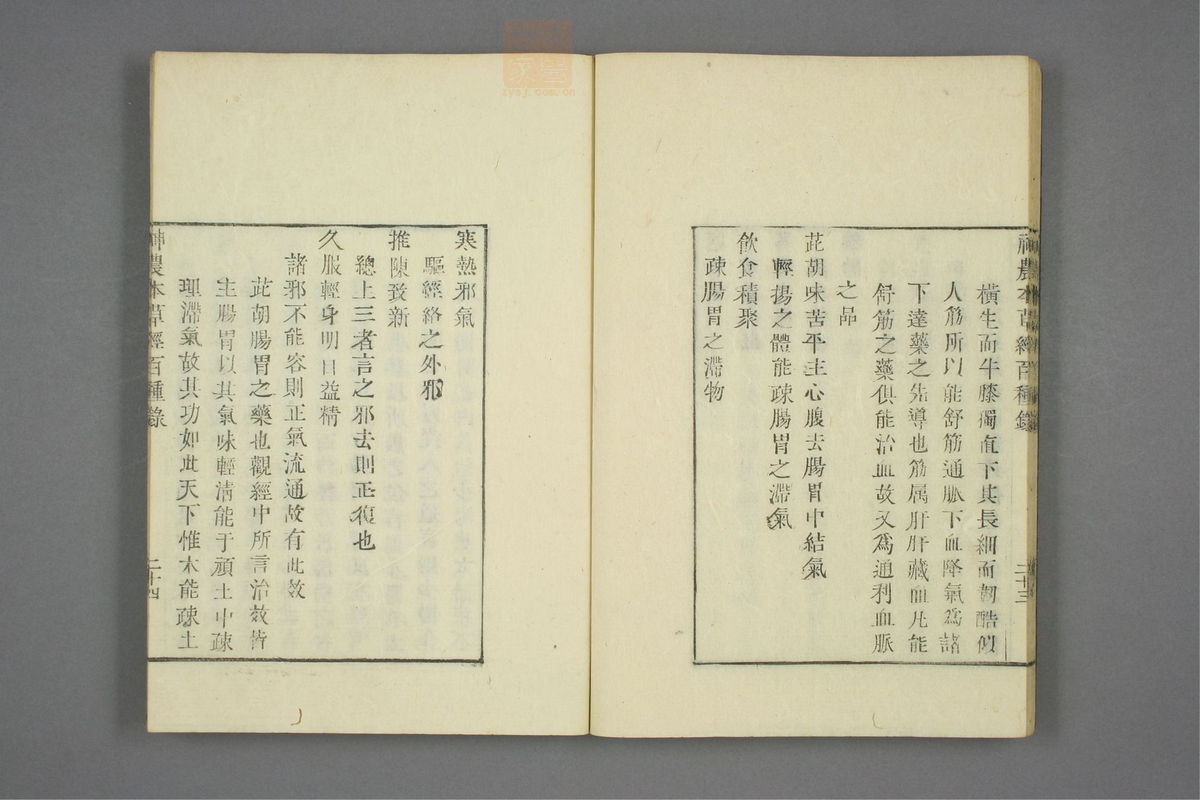 橫生而牛膝獨直下其長細而韌酷似
人筋所以能舒筋通脈下血降氣為諸
下達藥之先導也筋屬肝肝藏血凡能
舒筋之藥俱能治血故又爲通利血脈
之品
茈胡味苦平主心腹去腸胃中結氣
輕揚之體能疎腸胃之滯氣
飲食積聚
疎腸胃之滯物
神農本草經百種錄
二十三
寒熱邪氣
驅經絡之外邪
推陳致新
總上三者言之邪去則正復也
久服輕身明目益精
諸邪不能容則正氣流通故有此效
茈胡腸胃之藥也觀經中所言治效皆
主腸胃以其氣味輕清能于頑土中疎
理滯氣故其功如此天下惟木能疎土
神農本草經百種錄
二十四
zysj.com.cn